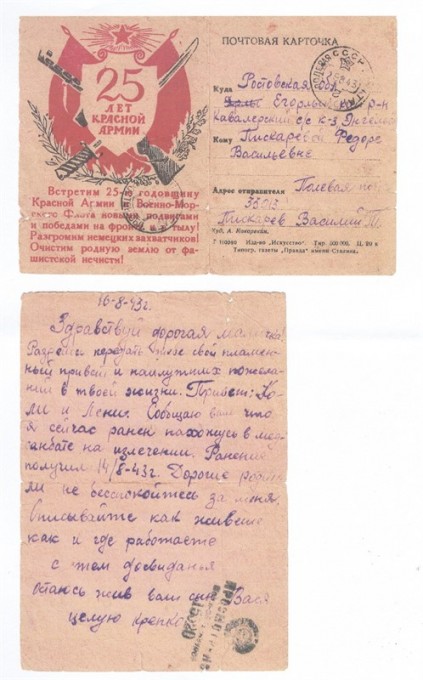 25
ЛЕТ
КРАСНОЙ
АРМИИ
Встретим 25-ю годовщину
Красной Армии Военно-Мор-
ского Флота новыми подвигами
и победами на фронте и в тылу!
Разгромим немецких захватчиков!
Очистим родную землю от фа-
шистской нечисти!
ПОЧТОВАЯ КАРТОЧКА
Куда Ростовская обл
Егорлыкский р-н
Кавалерский с/с к-з Энгельс
Кому Пискаревой Федоре
Васильевне
Адрес отправителя Полевая поч
35013
Пискарев Василий
Худ. А. Кокорекин.
Изд-во „Искусство“ Тир. 500 000. Ц. 20 к
Типогр. газеты „Правда“ имени Сталина.
16-8-43г.
Здравствуй дорогая мамаша!
Разрешите передать тебе свой пламен-
ный привет и наилучших пожела-
ний в твоей жизни. Привет: Ко-
ли и Лени. Сообщаю вам что
я сейчас ранен нахожусь в мед-
санбате на излечении. Ранение
получил 14/8-43г. Дорогие роди-
ли не беспокойтесь за меня.
Описывайте как живете
как и где работаете
с тем досвиданья
остаюсь жив ваш сын Вася
целую крепко
ПРОСМОТРЕНО
15520